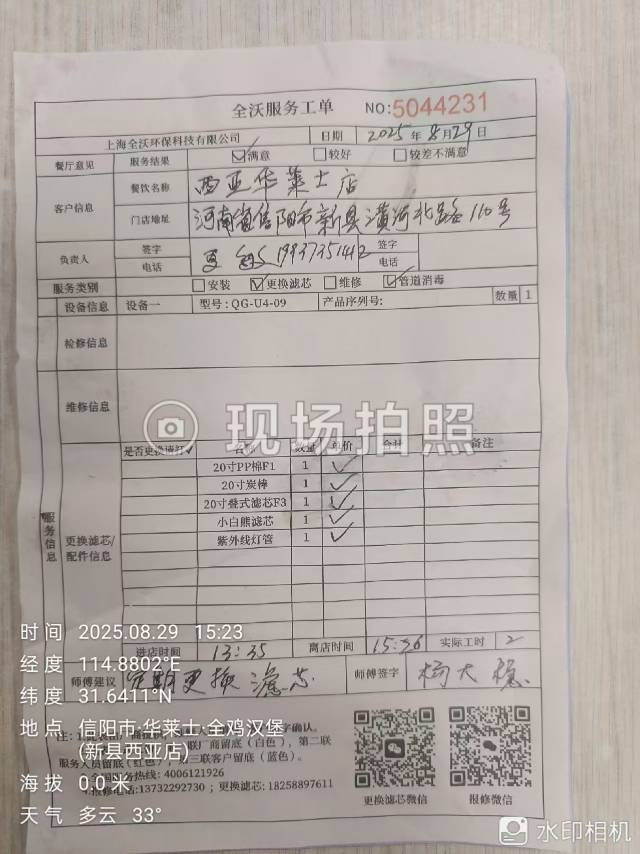 全沃服务工单 NO:5044231
上海全沃环保科技有限公司 日期 2025年8月29日
餐厅意见 服务结果 ☑满意 □较好 □较差不满意
客户信息 餐饮名称 西亚华莱士店
门店地址 河南省信阳市新县潢河北路110号
负责人 签字 签字
电话 19937351412 电话
服务类别 □安装 ☑更换滤芯 □维修 ☑管道消毒
设备信息 设备一 型号:QG-U4-09 产品序列号: 数量 1
检修信息
维修信息
现场拍照
是否更换请打✓ 名称 数量 单价 合计 备注
20寸PP棉F1 1 ✓
20寸炭棒 1 ✓
20寸叠式滤芯F3 1 ✓
小白熊滤芯 1 ✓
紫外线灯管 1 ✓
服务信息
更换滤芯/
配件信息
进店时间 13:35 离店时间 15:26 实际工时 2
师傅建议 定期更换滤芯. 师傅签字
时间 2025.08.29 15:23
经度 114.8802°E
纬度 31.6411°N
地点 信阳市·华莱士·全鸡汉堡
(新县西亚店)
海拔 0.0 米
天气 多云 33°
字确认。
联厂商留底(白色),第二联
服务人员留底(红色),三联客户留底(蓝色)。
全国服务热线: 4006121926
报修电话:13732292730 ; 更换滤芯: 18258897611
更换滤芯微信 报修微信
水印相机